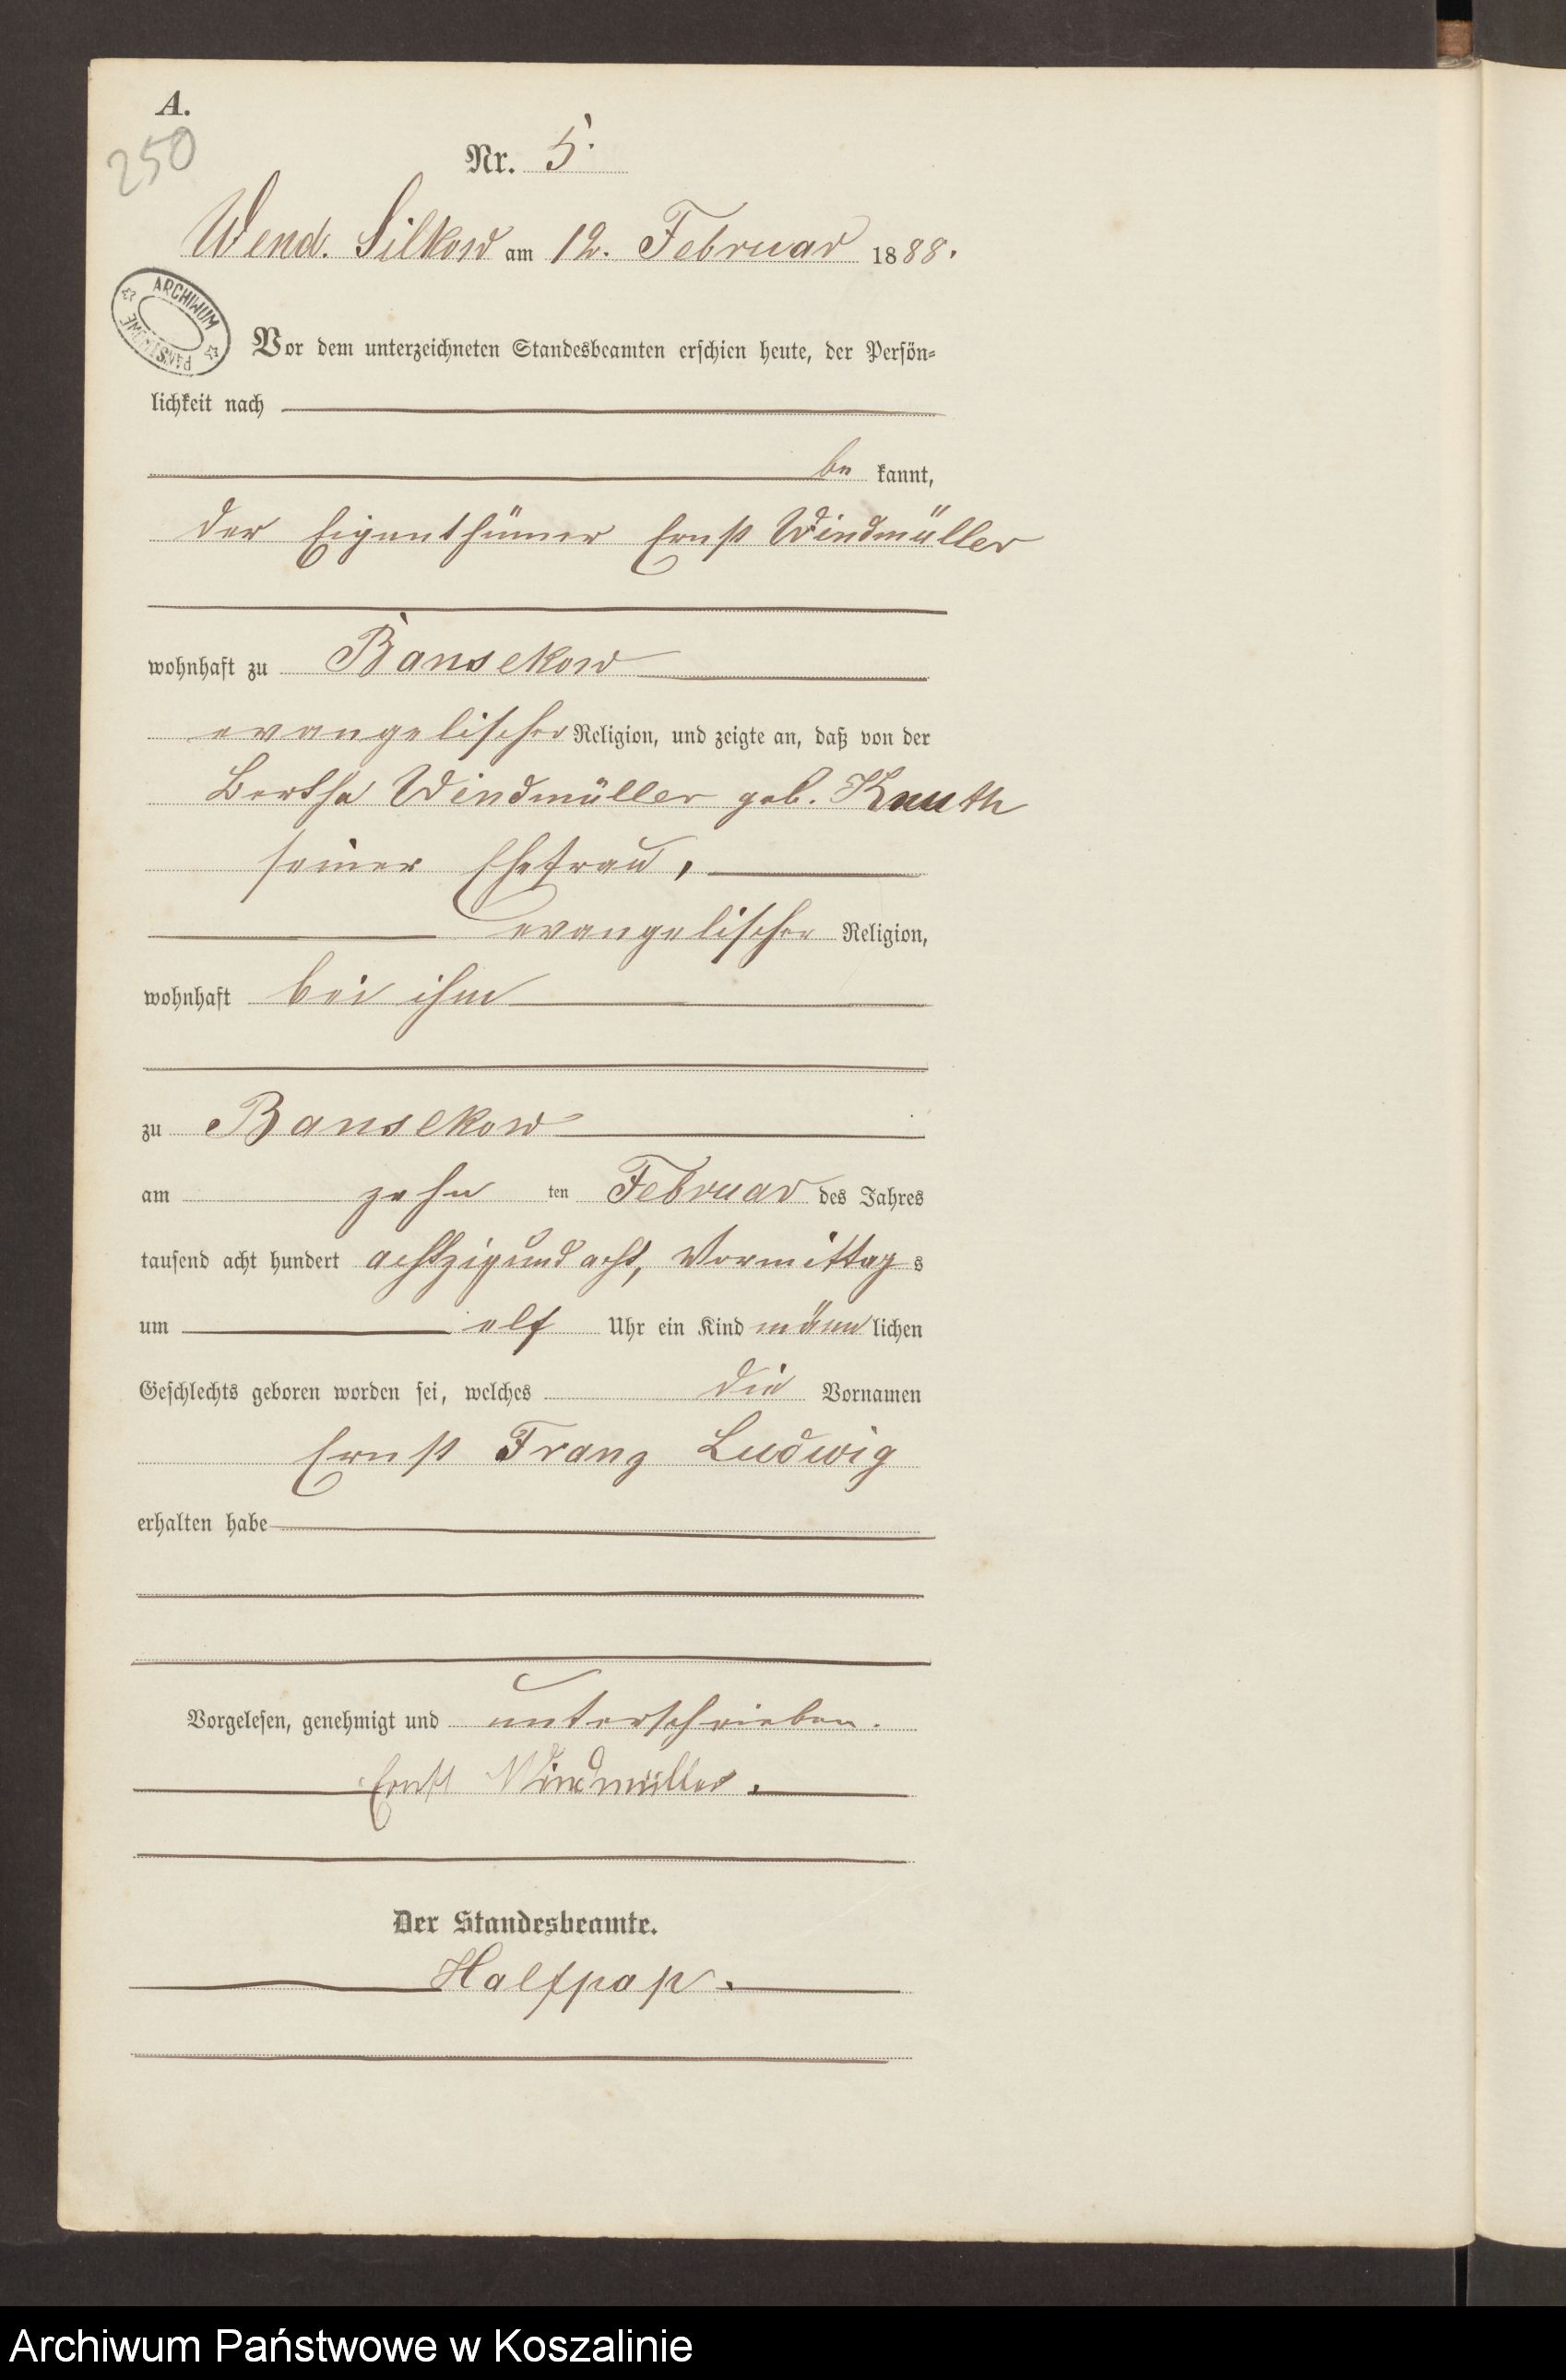 A.
250
Nr. 5.
Wend. Silkow am 12. Februar 1888.
ARCHIWUM PAŃSTWOWE
Vor dem unterzeichneten Standesbeamten erschien heute, der Persön-
lichkeit nach
be kannt,
der Eigenthümer Ernst Windmüller
wohnhaft zu Bansekow
evangelischer Religion, und zeigte an, daß von der
Bertha Windmüller geb. Knuth
seiner Ehefrau,
evangelischer Religion,
wohnhaft bei ihm
zu Bansekow
am zehn ten Februar des Jahres
tausend acht hundert achtzig und acht, Vormittag s
um elf Uhr ein Kind männ lichen
Geschlechts geboren worden sei, welches die Vornamen
Ernst Franz Ludwig
erhalten habe
Vorgelesen, genehmigt und unterschrieben.
Ernst Windmüller.
Der Standesbeamte.
Halfpap.
Archiwum Państwowe w Koszalinie